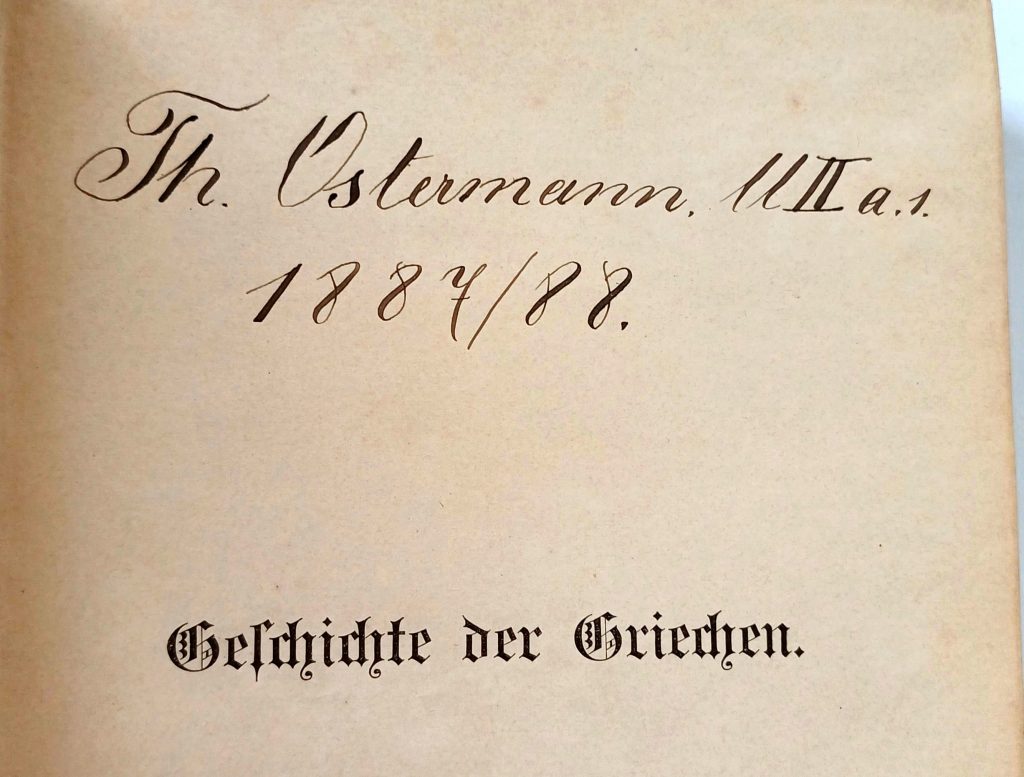 Th. Ostermann. UII a.1.
1887/88.
Geſchichte der Griechen.